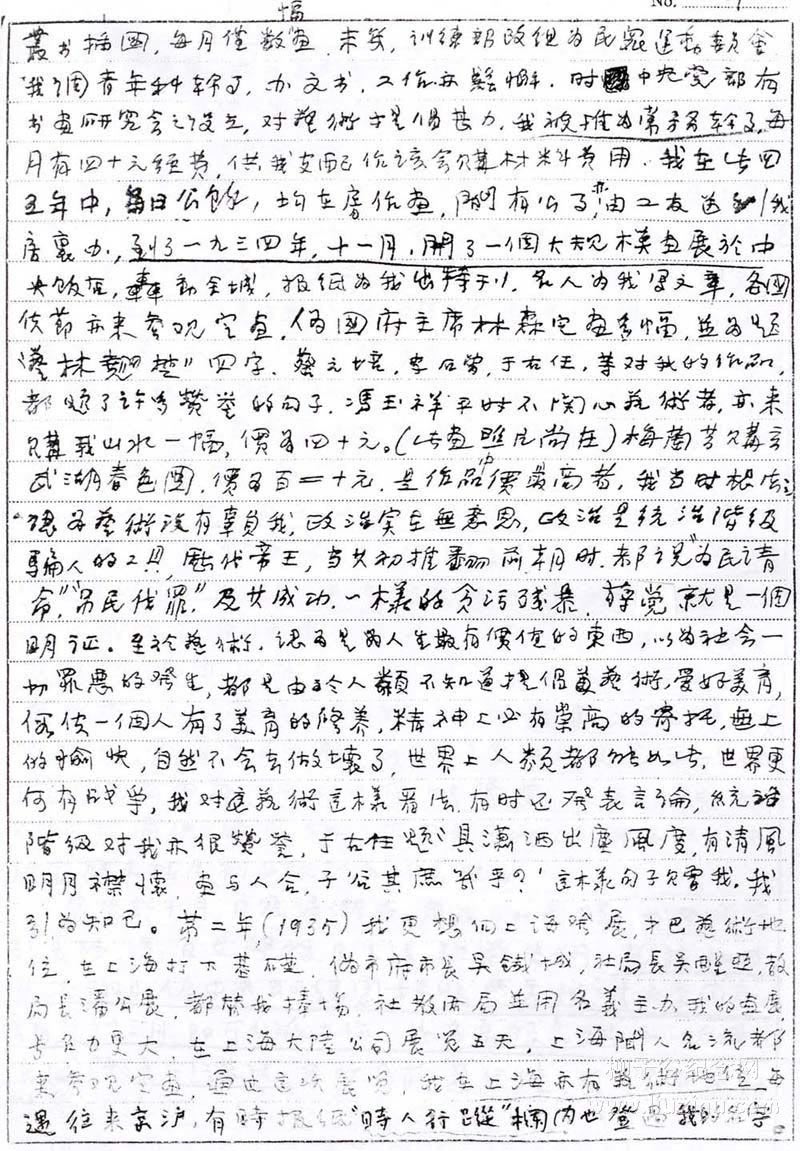 幅
No. 1
叢书插图，每月僅数畫，未幾，训練部改组为民眾運動委員會
我调青年科幹事，办文书，工作亦鬆懈，时中央党部有
书畫研究会之设立，对藝術于是倡甚力，我被推为常务幹事，每
月有四十元经费，供我支配作该会购材料費用．我在此四
五年中，每日公餘，均在房作畫，間有公事，由工友送到我
房裏办，到了一九三四年，十一月，開了一個大规模畫展於中
央饭店，轟動全城，报纸为我出特刊，名人为我写文章，各國
使節亦来参观定畫，伪國府主席林森定畫幅，並为题
藝林翘楚"四字．蔡元培，李石曾，于右任，等对我的作品，
都题了许多赞誉的句子．馮玉祥平时不関心藝術者，亦来
购我山水一幅，價为四十元。(此畫照片尚在)梅蘭芳购玄
武湖春色图，價为百二十元，是作品中價最高者，我当时想法：
认为藝術没有辜負我，政治实在無意思，政治是统治階级
騙人的工具，歷代帝王，当其初推翻前朝时，都说"为民请
命""吊民伐罪"及其成功，一样的贪污残暴，蒋党就是一個
明证。至於藝術，认为是为人生最有價值的東西，以为社会一
切罪恶的發生，都是由於人類不知道提倡藝術，爱好美育，
假使一個人有了美育的修养，精神上必有崇高的寄托，無上
的愉快，自然不会去做壞事，世界上人类都能如此，世界更
何有战争，我对藝術這样看法，有时还發表言論，統治
階级对我亦很赞誉，于右任题"具瀟洒出塵風度，有清風
明月襟懷，畫与人合，子谷其庶幾乎？"這样句子贈我，我
引为知己。第二年(1935)我更想向上海發展，才把藝術地
位，在上海打下基礎，偽市府市長吳鐵城，社局長吳醒亞，教
局長潘公展，都替我捧場，社教两局並用名義主办我的畫展，
号召力更大，在上海大陸公司展览五天，上海聞人名流都
来参观定畫，通过這次展览，我在上海亦有藝術地位，每
遇往来京沪，有時报纸"時人行蹤"欄内也登過我的名字。